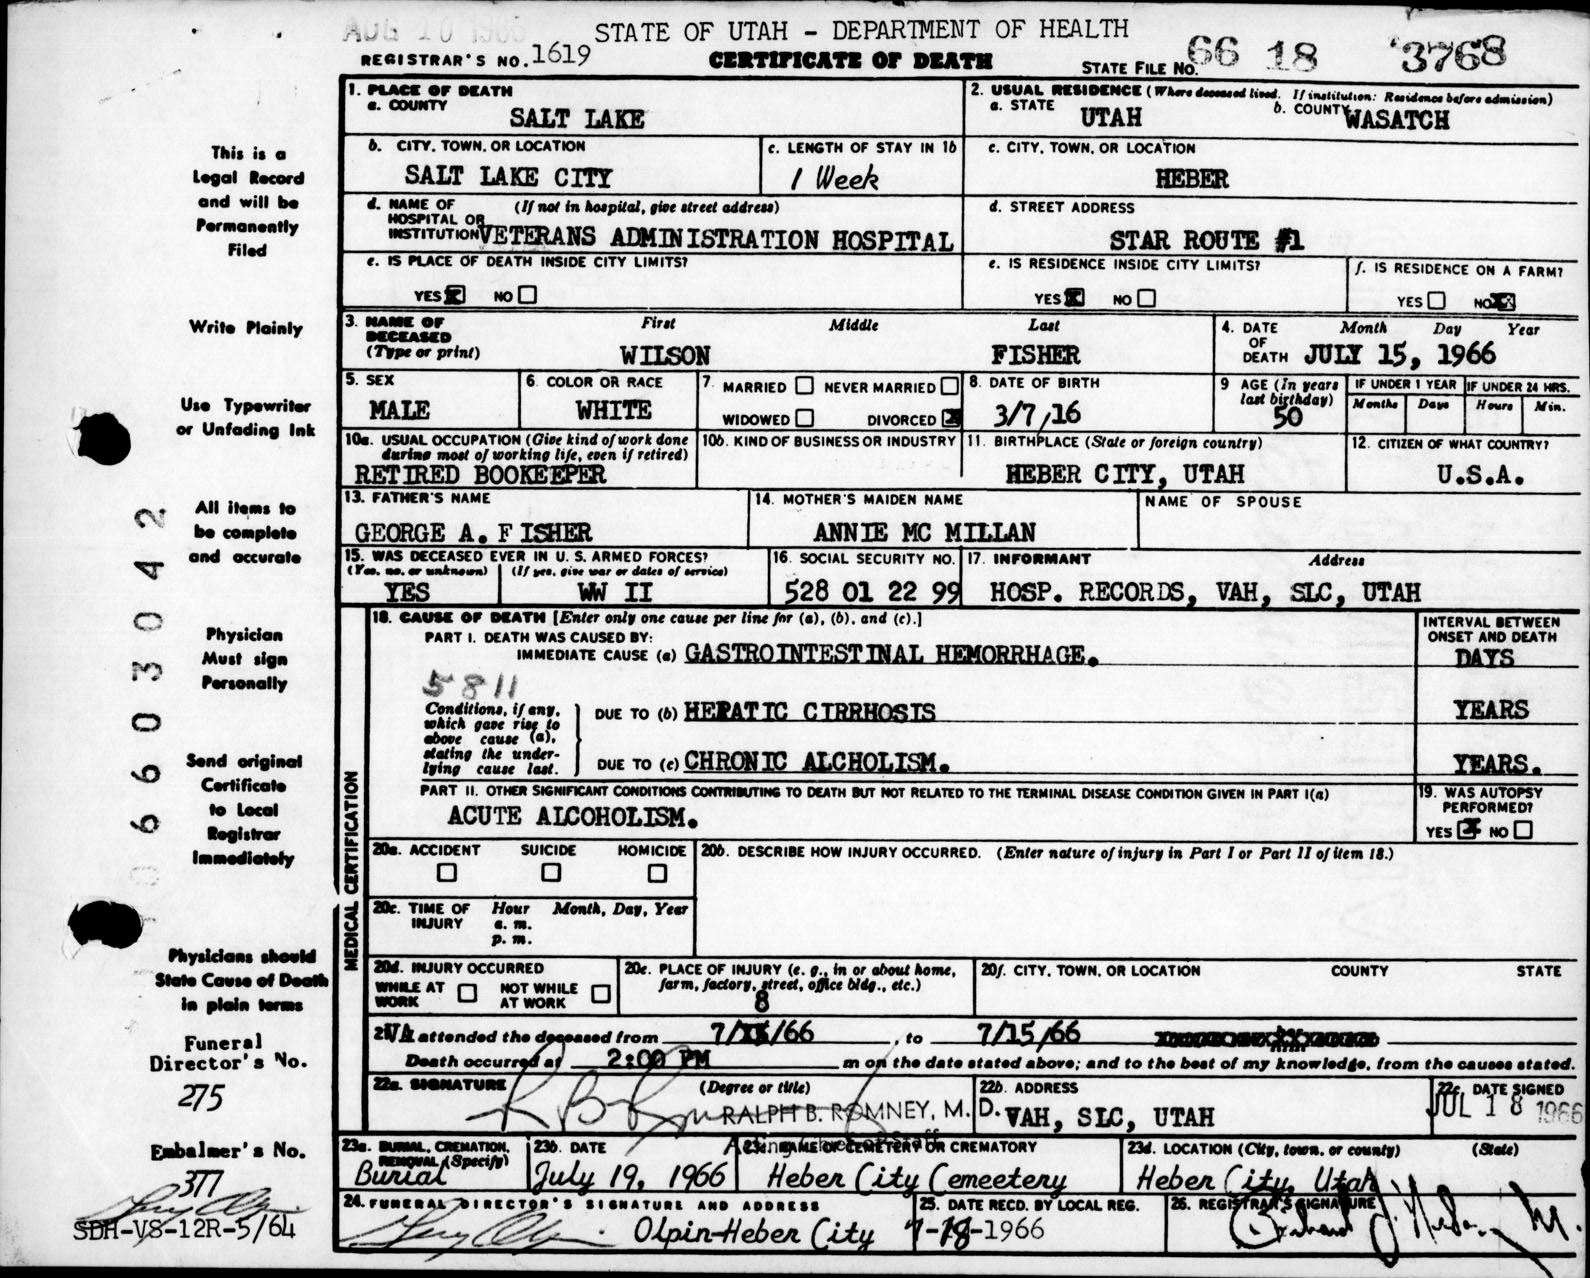 AUG 10 1966
STATE OF UTAH - DEPARTMENT OF HEALTH
REGISTRAR'S NO. 1619
CERTIFICATE OF DEATH
STATE FILE NO. 66 18 3768
This is a
Legal Record
and will be
Permanently
Filed
Write Plainly
Use Typewriter
or Unfading Ink
All items to
be complete
and accurate
Physician
Must sign
Personally
Send original
Certificate
to Local
Registrar
Immediately
Physicians should
State Cause of Death
in plain terms
Funeral
Director's No.
275
Embalmer's No.
377
SDH-VS-12R-5/64
0660303042
1. PLACE OF DEATH
a. COUNTY
SALT LAKE
2. USUAL RESIDENCE (Where deceased lived. If institution: Residence before admission)
a. STATE UTAH b. COUNTY WASATCH
b. CITY, TOWN, OR LOCATION
SALT LAKE CITY
c. LENGTH OF STAY IN 1b
1 Week
c. CITY, TOWN, OR LOCATION
HEBER
d. NAME OF HOSPITAL OR INSTITUTION (If not in hospital, give street address)
VETERANS ADMINISTRATION HOSPITAL
d. STREET ADDRESS
STAR ROUTE #1
e. IS PLACE OF DEATH INSIDE CITY LIMITS?
YES X NO
e. IS RESIDENCE INSIDE CITY LIMITS?
YES X NO
f. IS RESIDENCE ON A FARM?
YES NO XX
3. NAME OF DECEASED (Type or print)
First Middle Last
WILSON FISHER
4. DATE OF DEATH Month Day Year
JULY 15, 1966
5. SEX
MALE
6. COLOR OR RACE
WHITE
7. MARRIED NEVER MARRIED
WIDOWED DIVORCED X
8. DATE OF BIRTH
3/7/16
9 AGE (In years last birthday)
50
IF UNDER 1 YEAR
Months Days
IF UNDER 24 HRS.
Hours Min.
10a. USUAL OCCUPATION (Give kind of work done during most of working life, even if retired)
RETIRED BOOKEEPER
10b. KIND OF BUSINESS OR INDUSTRY
11. BIRTHPLACE (State or foreign country)
HEBER CITY, UTAH
12. CITIZEN OF WHAT COUNTRY?
U.S.A.
13. FATHER'S NAME
GEORGE A. FISHER
14. MOTHER'S MAIDEN NAME
ANNIE MC MILLAN
NAME OF SPOUSE
15. WAS DECEASED EVER IN U. S. ARMED FORCES?
(Yes, no, or unknown) (If yes, give war or dates of service)
YES WW II
16. SOCIAL SECURITY NO.
528 01 22 99
17. INFORMANT Address
HOSP. RECORDS, VAH, SLC, UTAH
MEDICAL CERTIFICATION
18. CAUSE OF DEATH [Enter only one cause per line for (a), (b), and (c).]
PART I. DEATH WAS CAUSED BY:
IMMEDIATE CAUSE (a) GASTROINTESTINAL HEMORRHAGE.
INTERVAL BETWEEN ONSET AND DEATH
DAYS
5811
Conditions, if any, which gave rise to above cause (a), stating the underlying cause last.
DUE TO (b) HEPATIC CIRRHOSIS
YEARS
DUE TO (c) CHRONIC ALCHOLISM.
YEARS.
PART II. OTHER SIGNIFICANT CONDITIONS CONTRIBUTING TO DEATH BUT NOT RELATED TO THE TERMINAL DISEASE CONDITION GIVEN IN PART I(a)
ACUTE ALCOHOLISM.
19. WAS AUTOPSY PERFORMED?
YES X NO
20a. ACCIDENT SUICIDE HOMICIDE
20b. DESCRIBE HOW INJURY OCCURRED. (Enter nature of injury in Part I or Part II of item 18.)
20c. TIME OF INJURY Hour Month, Day, Year
a. m.
p. m.
20d. INJURY OCCURRED
WHILE AT WORK NOT WHILE AT WORK
20e. PLACE OF INJURY (e. g., in or about home, farm, factory, street, office bldg., etc.)
20f. CITY, TOWN, OR LOCATION COUNTY STATE
8
21. VA attended the deceased from 7/ /66, to 7/15/66
Death occurred at 2:00 PM m on the date stated above; and to the best of my knowledge, from the causes stated.
22a. SIGNATURE (Degree or title)
RALPH B. ROMNEY, M.D.
Acting Chief of Staff
22b. ADDRESS
VAH, SLC, UTAH
22c. DATE SIGNED
JUL 18 1966
23a. BURIAL, CREMATION, REMOVAL (Specify)
Burial
23b. DATE
July 19, 1966
23c. NAME OF CEMETERY OR CREMATORY
Heber City Cemeetery
23d. LOCATION (City, town, or county) (State)
Heber City, Utah
24. FUNERAL DIRECTOR'S SIGNATURE AND ADDRESS
Olpin-Heber City
25. DATE RECD. BY LOCAL REG.
7-18-1966
26. REGISTRAR'S SIGNATURE